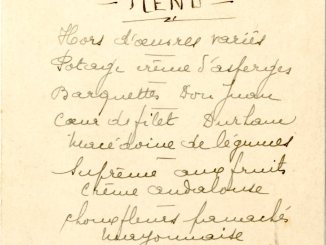 MENU
Hors d'œuvres variés
Potage crème d'asperges
Barquettes Don Juan
Cœur de filet Durham
Macédoine de légumes
Suprême aux fruits
Crème andalouse
Choux fleurs panachés
Mayonnaise